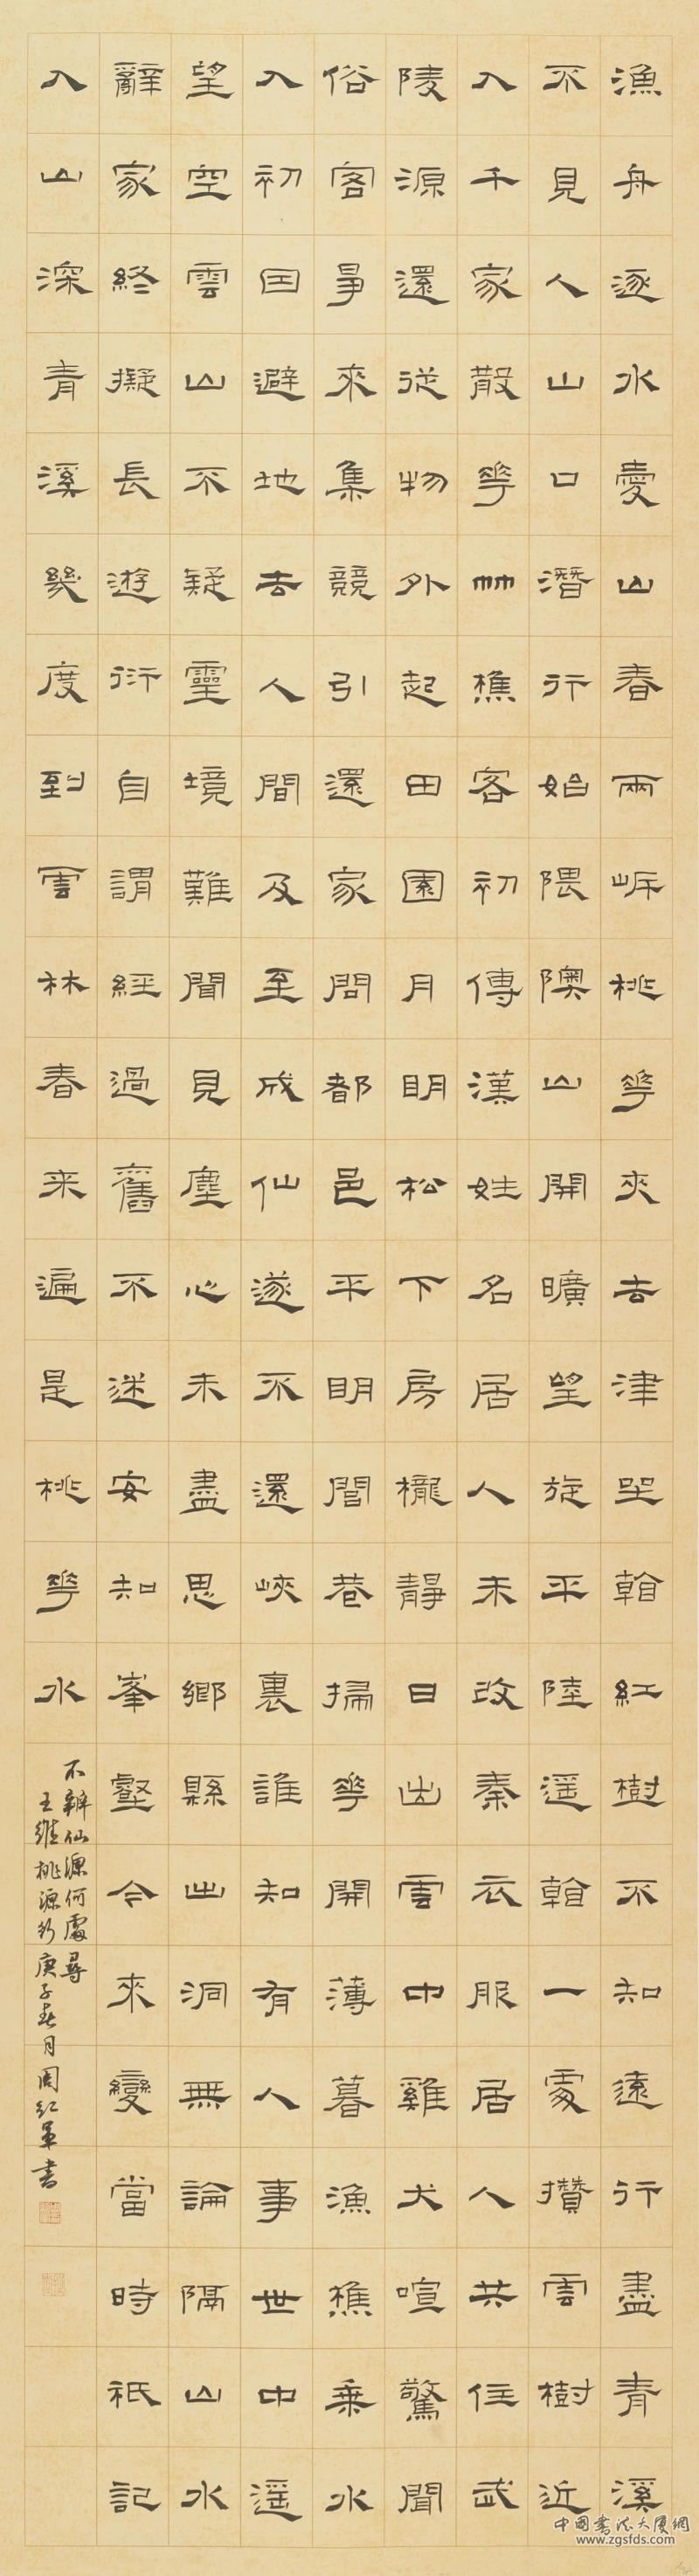 漁舟逐水愛山春兩岸桃華夾去津坐看紅樹不知遠行盡青溪
不見人山口潛行始隈隩山開曠望旋平陸遥看一處攢雲樹近
入千家散華竹樵客初傳漢姓名居人未改秦衣服居人共住武
陵源還從物外起田園月明松下房櫳靜日出雲中雞犬喧驚聞
俗客爭來集競引還家問都邑平明閭巷掃華開薄暮漁樵乘水
入初因避地去人間及至成仙遂不還峽裏誰知有人事世中遥
望空雲山不疑靈境難聞見塵心未盡思鄉縣出洞無論隔山水
辭家終擬長遊衍自謂經過舊不迷安知峯壑今來變當時衹記
入山深青溪幾度到雲林春来遍是桃華水
不辨仙源何處尋
王維桃源行 庚子春月周红軍書
中国书法大厦网
www.zgsfds.com